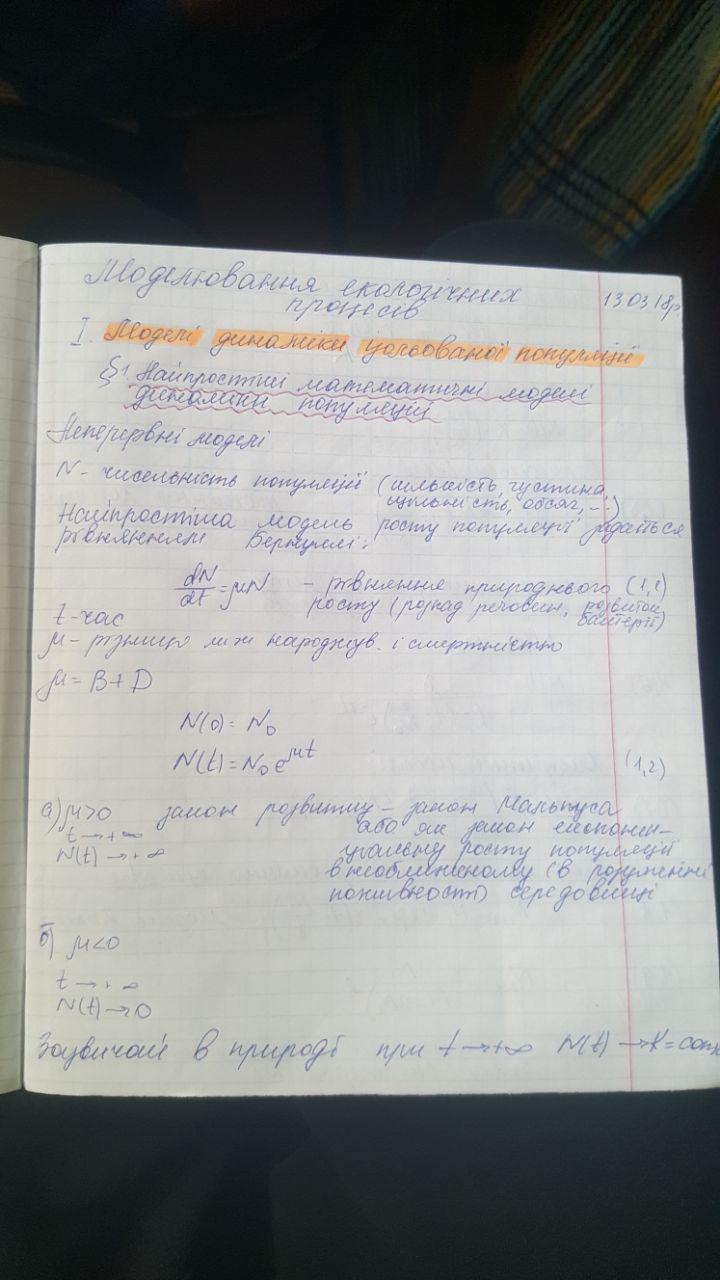 Моделювання екологічних
процесів
13.03.18р.
I. Моделі динаміки ізольованої популяції
§1 Найпростіші математичні моделі
динаміки популяцій
Неперервні моделі
N - чисельність популяції (кількість, густина,
щільність, обсяг, ...)
Найпростіша модель росту популяції задається
рівнянням Бернуллі:
dN/dt = μN - рівняння природнього (1,1)
росту (розпад речовин, розвиток
бактерії)
t - час
μ - різниця між народжув. і смертністю
μ = B + D
N(0) = N₀
N(t) = N₀e^μt (1,2)
а) μ>0 закон розвитку - закон Мальтуса
t → +∞ або як закон експонен-
N(t) → +∞ ціальну росту популяції
в необмеженому (в розумінні
поживності) середовищі
б) μ<0
t → +∞
N(t) → 0
Зазвичай в природі при t → +∞ N(t) → K = const